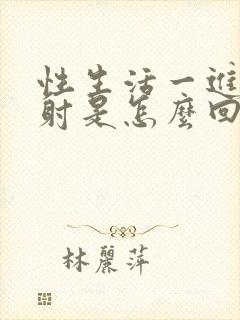 性生活一進
射是怎麼回
林麗萍